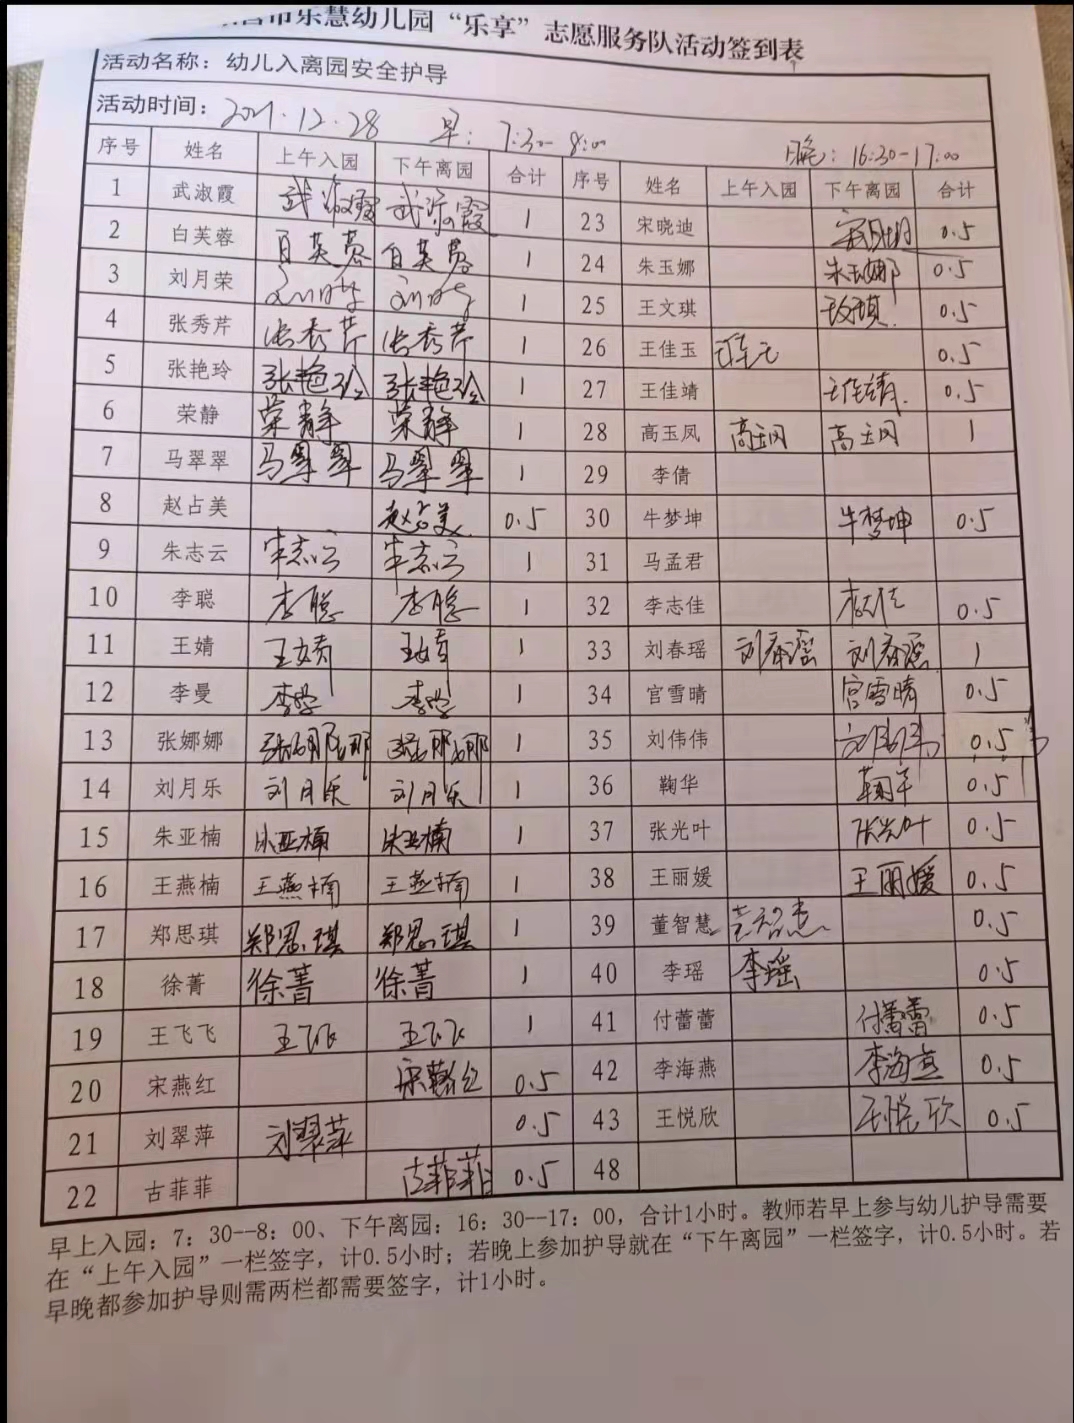 市乐慧幼儿园“乐享”志愿服务队活动签到表
活动名称：幼儿入离园安全护导
活动时间：2021.12.28 早：7:30-8:00 晚：16:30-17:00
序号 姓名 上午入园 下午离园 合计 序号 姓名 上午入园 下午离园 合计
1 武淑霞 武淑霞 武淑霞 1 23 宋晓迪 0.5
2 白芙蓉 白芙蓉 白芙蓉 1 24 朱玉娜 朱玉娜 0.5
3 刘月荣 刘月荣 刘月荣 1 25 王文琪 王文琪 0.5
4 张秀芹 张秀芹 张秀芹 1 26 王佳玉 王佳玉 0.5
5 张艳玲 张艳玲 张艳玲 1 27 王佳靖 王佳靖 0.5
6 荣静 荣静 荣静 1 28 高玉凤 高玉凤 高玉凤 1
7 马翠翠 马翠翠 马翠翠 1 29 李倩
8 赵占美 赵占美 0.5 30 牛梦坤 牛梦坤 0.5
9 朱志云 朱志云 朱志云 1 31 马孟君
10 李聪 李聪 李聪 1 32 李志佳 李志佳 0.5
11 王婧 王婧 王婧 1 33 刘春瑶 刘春瑶 刘春瑶 1
12 李曼 李曼 李曼 1 34 官雪晴 官雪晴 0.5
13 张娜娜 张娜娜 张娜娜 1 35 刘伟伟 刘伟伟 0.5
14 刘月乐 刘月乐 刘月乐 1 36 鞠华 鞠华 0.5
15 朱亚楠 朱亚楠 朱亚楠 1 37 张光叶 张光叶 0.5
16 王燕楠 王燕楠 王燕楠 1 38 王丽媛 王丽媛 0.5
17 郑思琪 郑思琪 郑思琪 1 39 董智慧 董智慧 0.5
18 徐菁 徐菁 徐菁 1 40 李瑶 李瑶 0.5
19 王飞飞 王飞飞 王飞飞 1 41 付蕾蕾 付蕾蕾 0.5
20 宋燕红 宋燕红 0.5 42 李海燕 李海燕 0.5
21 刘翠萍 刘翠萍 0.5 43 王悦欣 王悦欣 0.5
22 古菲菲 古菲菲 0.5 48
早上入园：7：30--8：00、下午离园：16：30--17：00，合计1小时。教师若早上参与幼儿护导需要
在“上午入园”一栏签字，计0.5小时；若晚上参加护导就在“下午离园”一栏签字，计0.5小时。若
早晚都参加护导则需两栏都需要签字，计1小时。